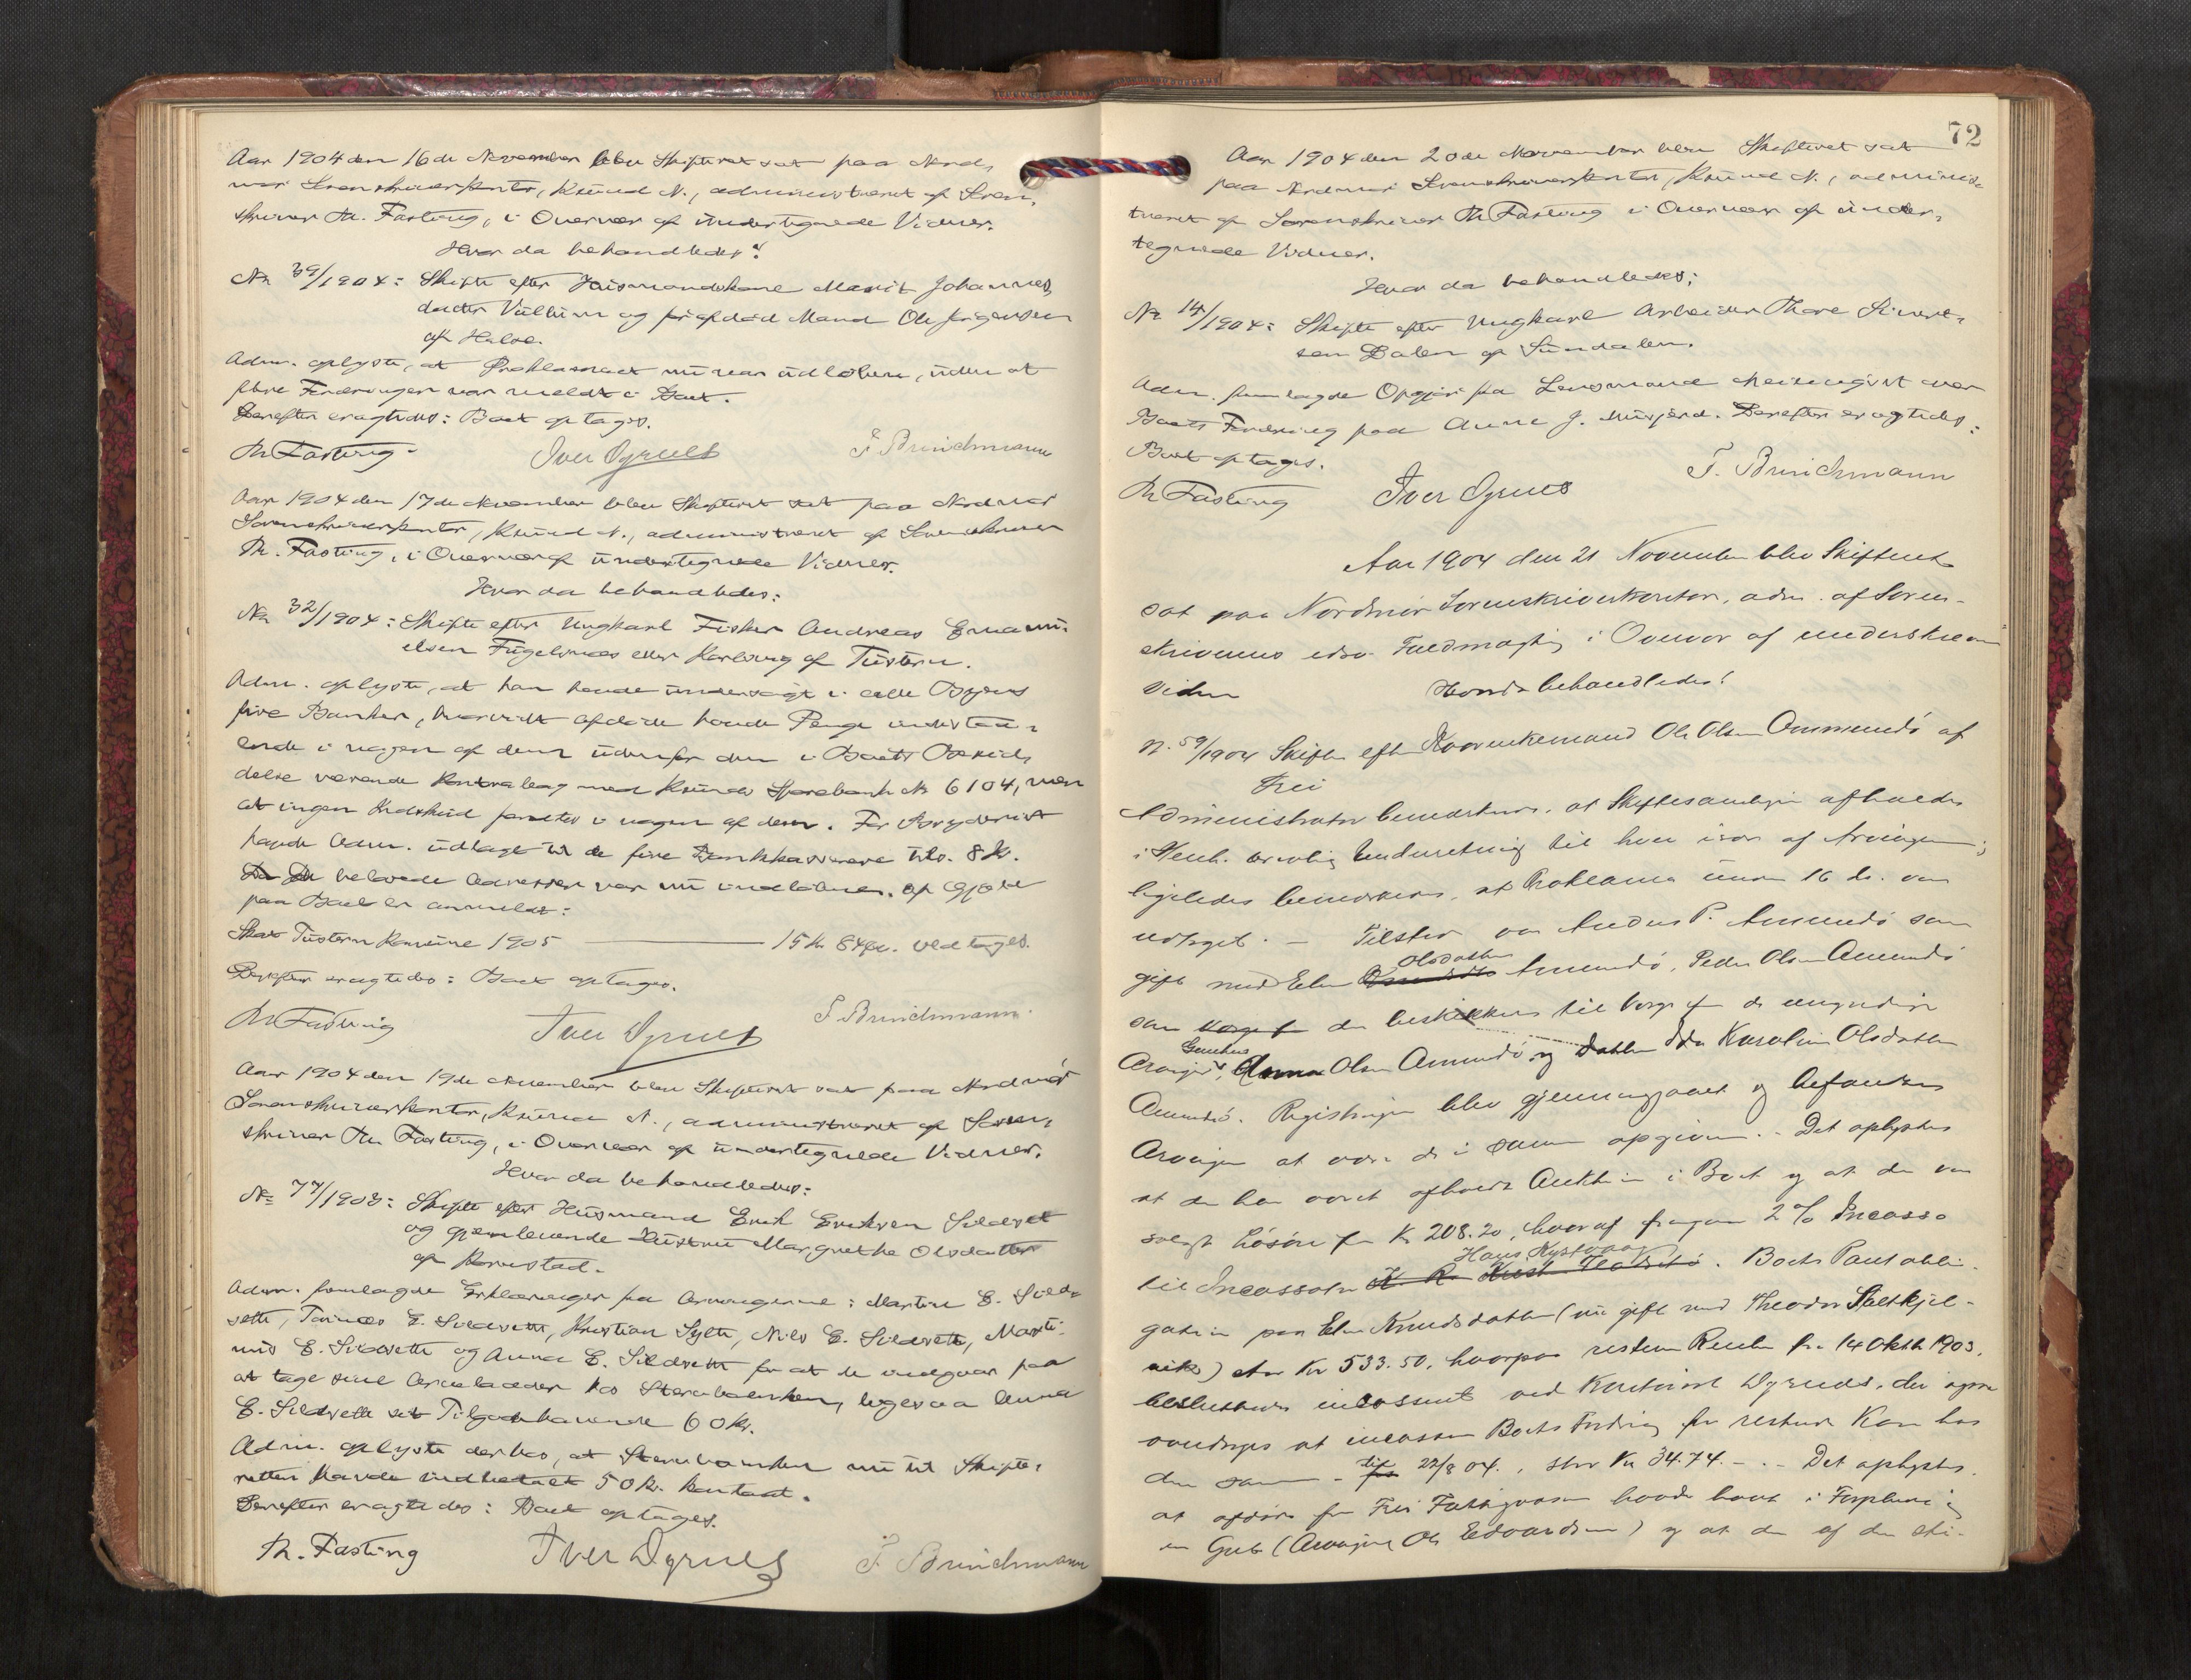 Aar 1904 den 16de November blev Skifteret sat paa Nord,
mør Sorenskriverkontor, Ksund N., administreret af Soren,
skriver Th. Fasting, i Overvær af undertegnede Vidner.
Hvor da behandledes:
No 39/1904: Skifte efter Husmandskone Marit Johannes,
datter Vullum og før afdød Mand Ole Jørgensen
af Halse.
Adm. oplyste, at Proklamaet nu var udløbet, uden at
flere Fordringer var meldt i Boet.
Derefter eragtedes: Boet optages.
Th. Fasting. Iver Dyrnes F Brinchmann
Aar 1904 den 17de November blev Skifteret sat paa Nordmør
Sorenskriverkontor, Ksund N., administreret af Sorenskriver
Th. Fasting, i Overvær af undertegnede Vidner.
Hvor da behandledes:
No 32/1904: Skifte efter Ungkarl Fisker Andreas Emanu,
elsen Fugelsnes eller Karlsvog af Tustern.
Adm. oplyste, at han havde undersøgt i alle Byens
fire Banker, hvorvidt afdøde havde Penge indestaa,
ende i nogen af dem udenfor den i Boets Besid,
delse værende Kontrabog med Ksunds Sparebank No 6104, men
at ingen Indskud fandtes i nogen af dem. For Bryderiet
havde Adm. udlagt til de fire Bankkasserere tils. 8 kr.
De belovede Adresser var nu indløbne. Af Gjæld
paa Boet er anmeldt:
Skat Tustern Komune 1905 15 kr 84 øre. vedtages.
Derefter eragtedes: Boet optages.
Th Fasting Iver Dyrnes F Brinchmann.
Aar 1904 den 19de November blev Skifteret sat paa Nordmør
Sorenskriverkontor, Ksund N., administreret af Soren,
skriver Th. Fasting, i Overvær af undertegnede Vidner.
Hvor da behandledes:
No 77/1903: Skifte efter Husmand Erik Eriksen Sildset
og gjenlevende Hustru Margrethe Olsdatter
af Kornstad.
Adm. fremlagde Erklæringer fra Arvingerne: Martin E. Sild,
sett, Tarines E. Sildsett, Kristian Sylte, Nils E. Sildsett, Marti,
nus E. Sildsett og Anna E. Sildsett for at de indgaar paa
at tage sine Arvelodder hos Stervboenken, ligesaa Anna
E. Sildsett sit Tilgodehavende 60 kr.
Adm. oplyste derhos, at Stervboenken nu til Skifte,
retten havde indbetalt 50 kr. kontant.
Derefter eragtedes: Boet optages.
Th. Fasting Iver Dyrnes F Brinchmann
72
Aar 1904 den 20de November blev Skifteret sat
paa Nordmør Sorenskriverkontor, Ksund N., adminis,
treret af Sorenskriver Th Fasting i Overvær af under,
tegnede Vidner.
Hvor da behandledes:
No 14/1904: Skifte efter Ungkarl Arbeider Thore Sivert,
sen Dalen af Sundalen.
Adm. fremlagde Opgjør fra Lensmand over
Boets Fordring paa Anne J. Derefter eragtedes:
Boet optages.
Th Fasting Iver Dyrnes F. Brinchmann
Aar 1904 den 21 November blev Skifteret
sat paa Nordmør Sorenskriverkontor, adm. af Soren-
skriverens edsv. Fuldmægtig i Overvær af underskrevne
Vidner Hvorda behandledes:
N. 59/1904 Skifte efter Ole Olsen Ommundø af
Frei
Administrator bemærkede, at Skiftesamlingen afholdes
i Henh. til lovlig Underretning til hver især af Arvingerne;
ligeledes bemærkes, at Proklama under 16 ds. var
udtaget. — Tilsted var Anders P. Amundø som
gift med Elen Olsdatter Amundø, Peder Olsen Amundø
som der beskikkes til Verge for de umyndige
Arvinger, Gunhus Olsen Amundø og Datter Ida Karoline Olsdatter
Amundø. Registreringen blev gjennemgaaet og befandtes
Arvingerne at være de i samme opgivne. — Det oplystes
at der har været afholdt Auktion i Boet og at der var
solgt Løsøre for Kr 208.20, hvoraf fragaar 2% Incasso
til Incassator Hans . Boets Pantobli-
gation paa Elen Knudsdatter (nu gift med Theodor
vik) stor Kr 533.50, hvorpaa restere Renter fra 14 Oktb 1903,
besluttedes incasseret ved Kontorist Dyrnes, der ogsaa
anmodes at incassere Boets Fordring for resterende Kaar hos
den samme - til 22/8 04., stor Kr 34.74. — Det oplystes
at afdøde fra Frei Fattigvæsen havde havt i Forpleining
en Gut (Arvingen Ole Edvardsen) og at der af den